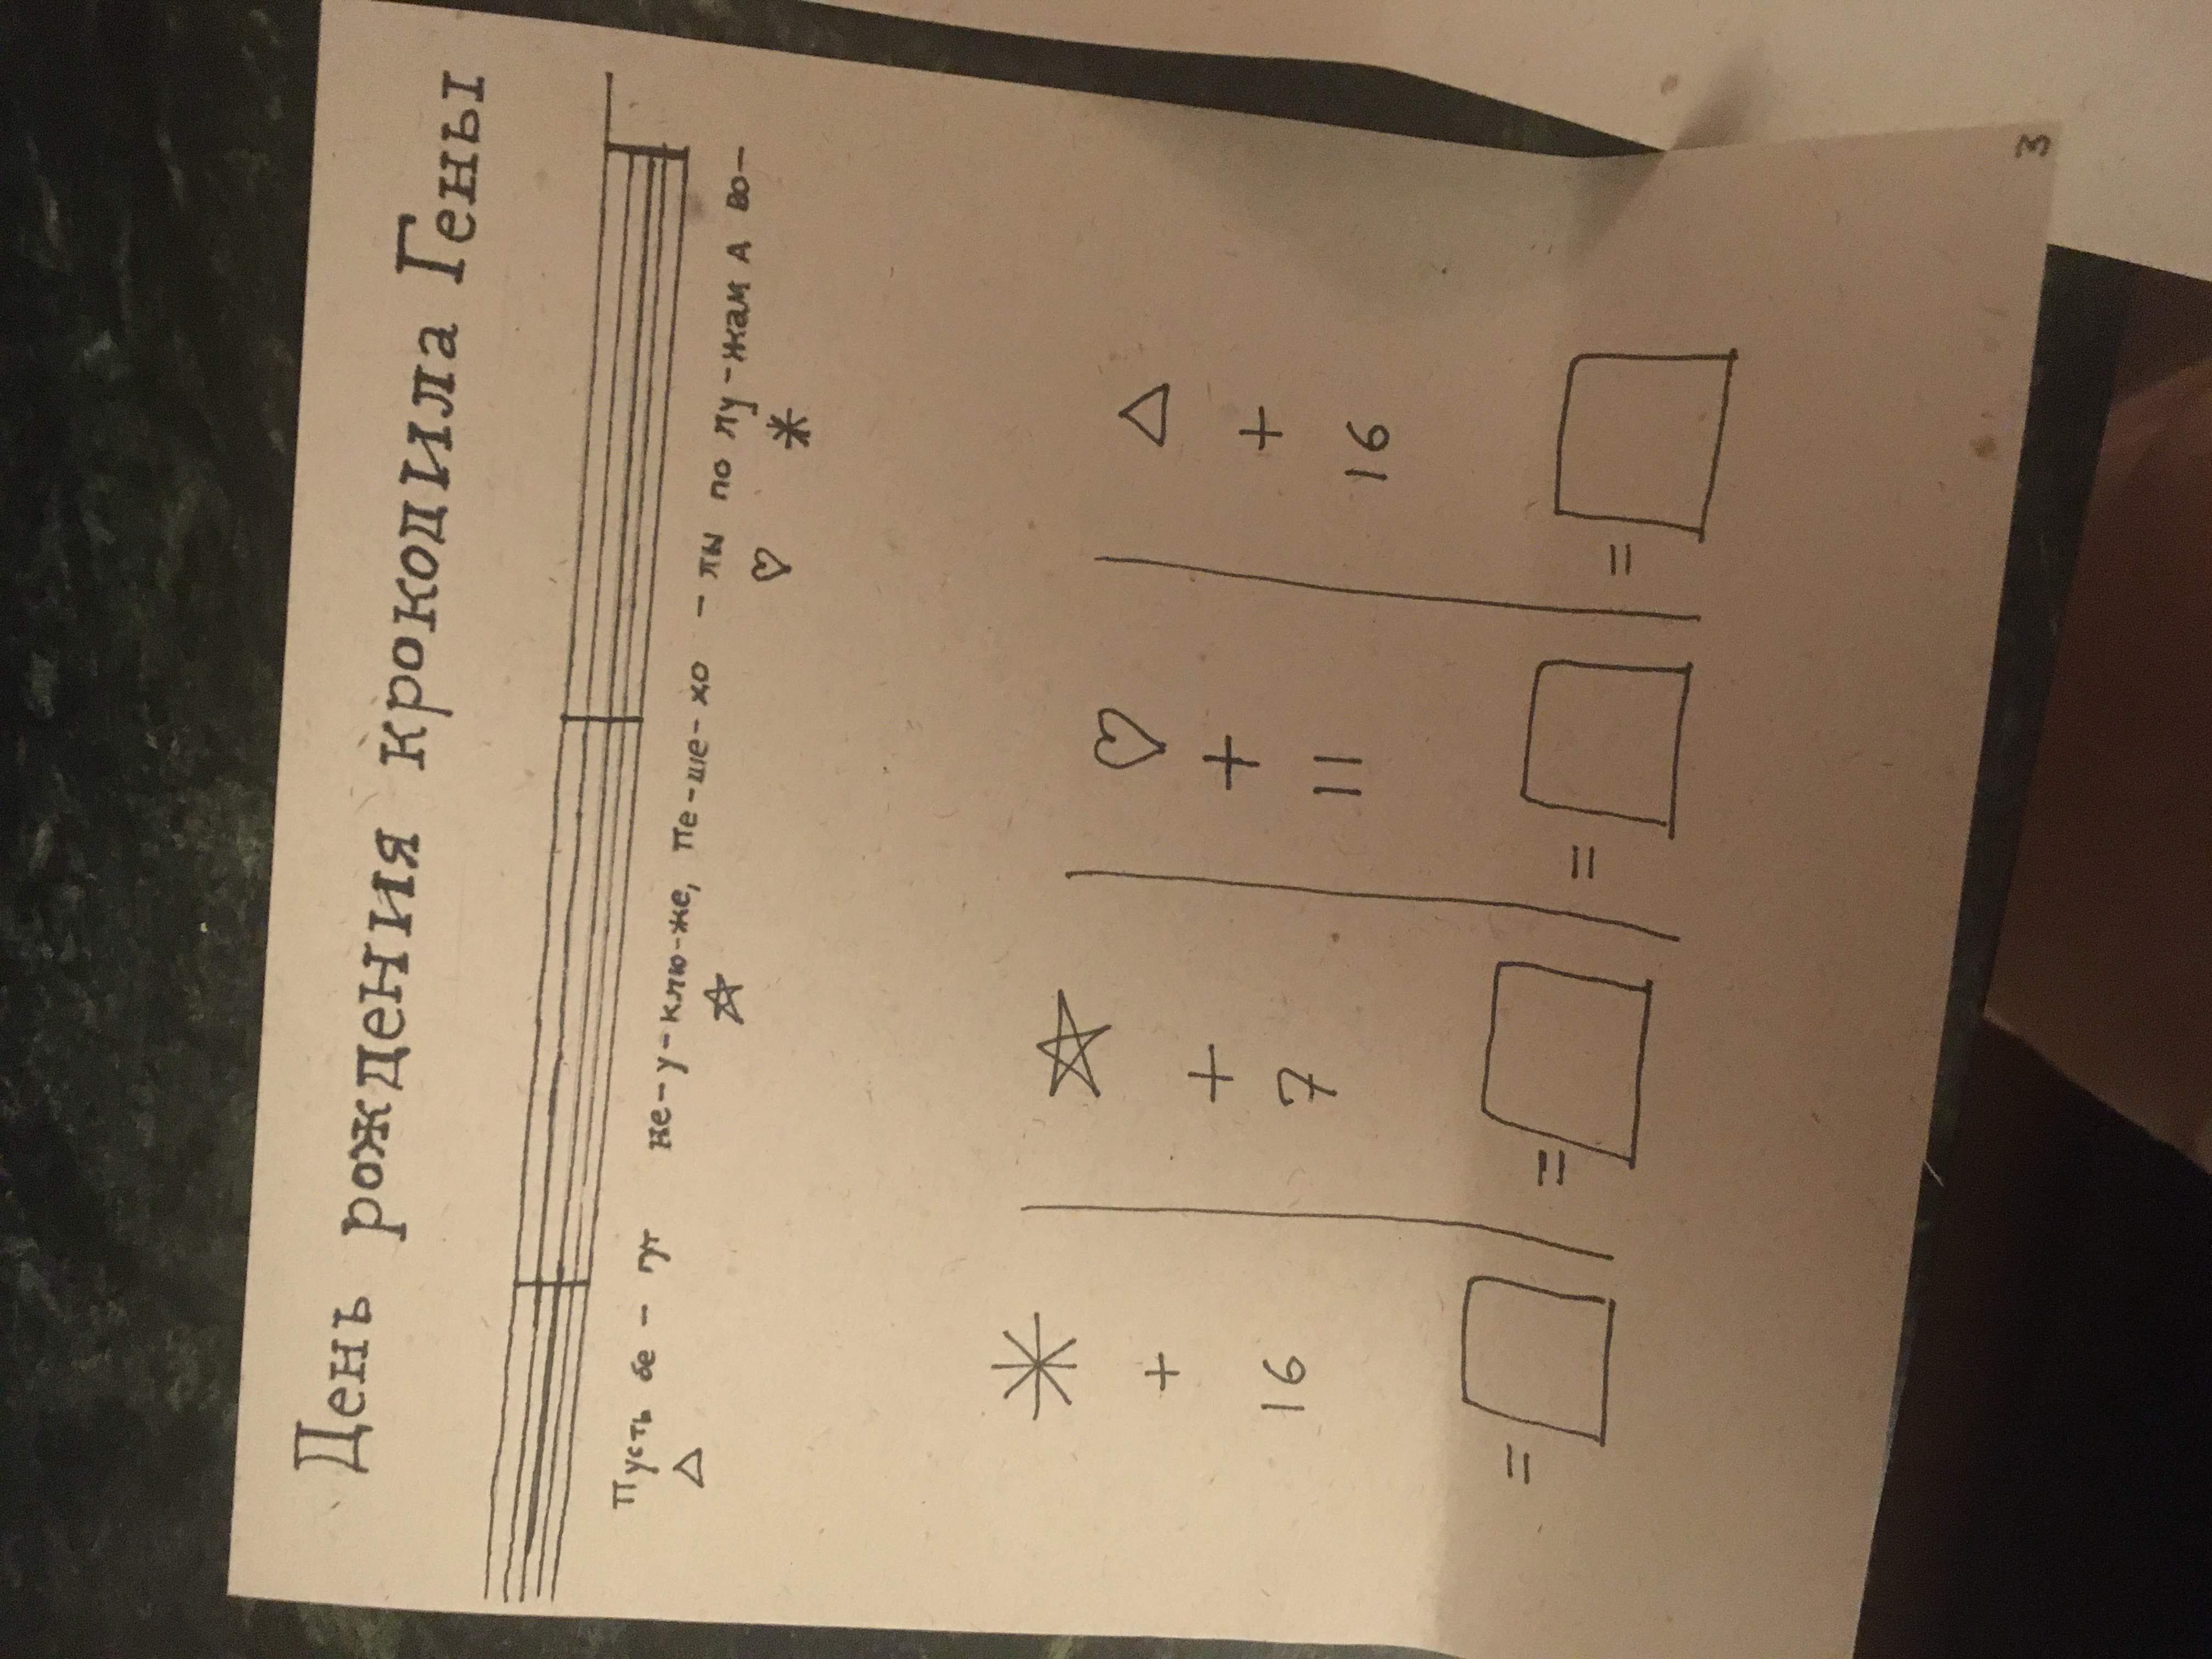 День рождения крокодила Гены
Пусть бе - гут не-у-клю-же, Пе-ше-хо - ды по лу-жам А во-
+ + + +
16 7 11 16
= = = =
3